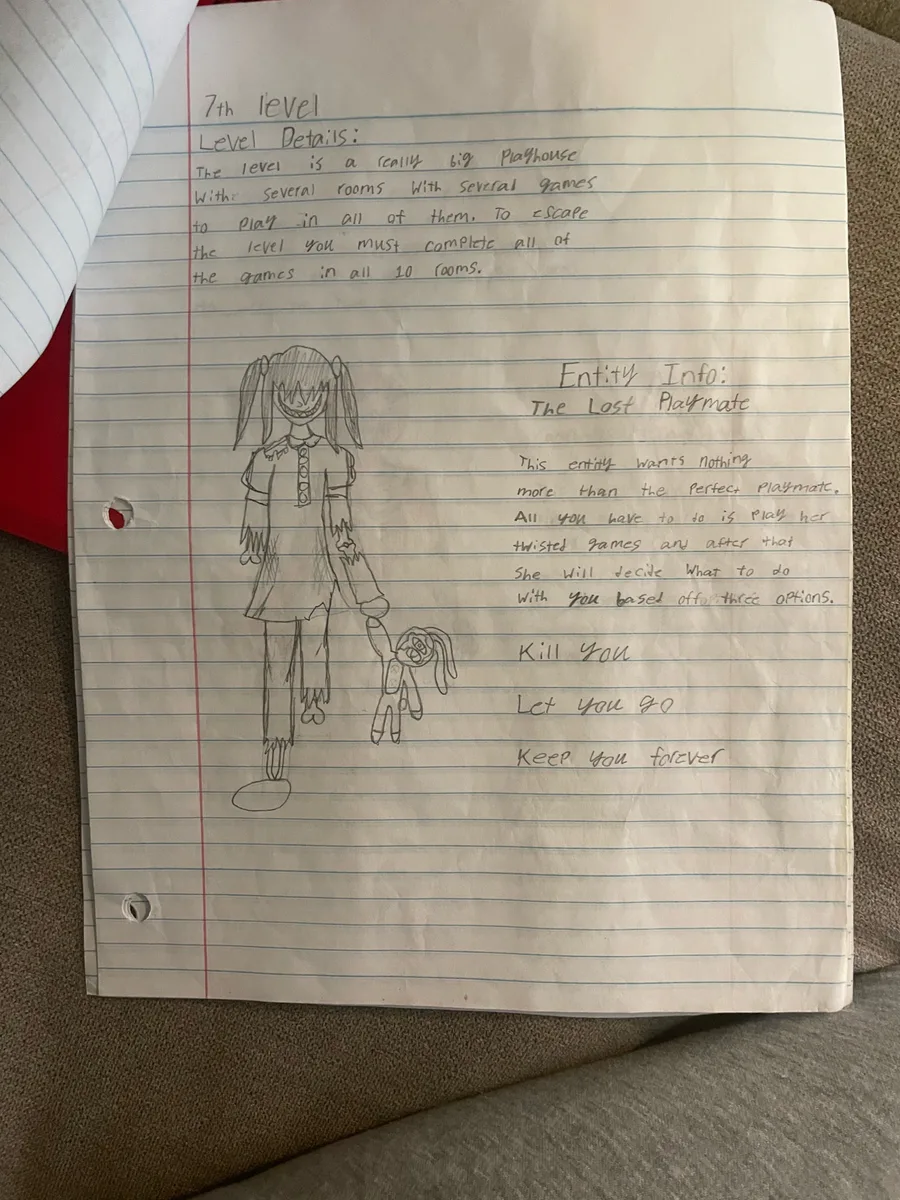 7th level
Level Details:
The level is a really big Playhouse
With several rooms With several games
to Play in all of them. To escape
the level you must complete all of
the games in all 10 rooms.
Entity Info:
The Lost Playmate
This entity wants nothing
more than the Perfect Playmate.
All you have to to is Play her
twisted games and after that
She will decide What to do
With you based off three options.
Kill you
Let you go
Keep you forever